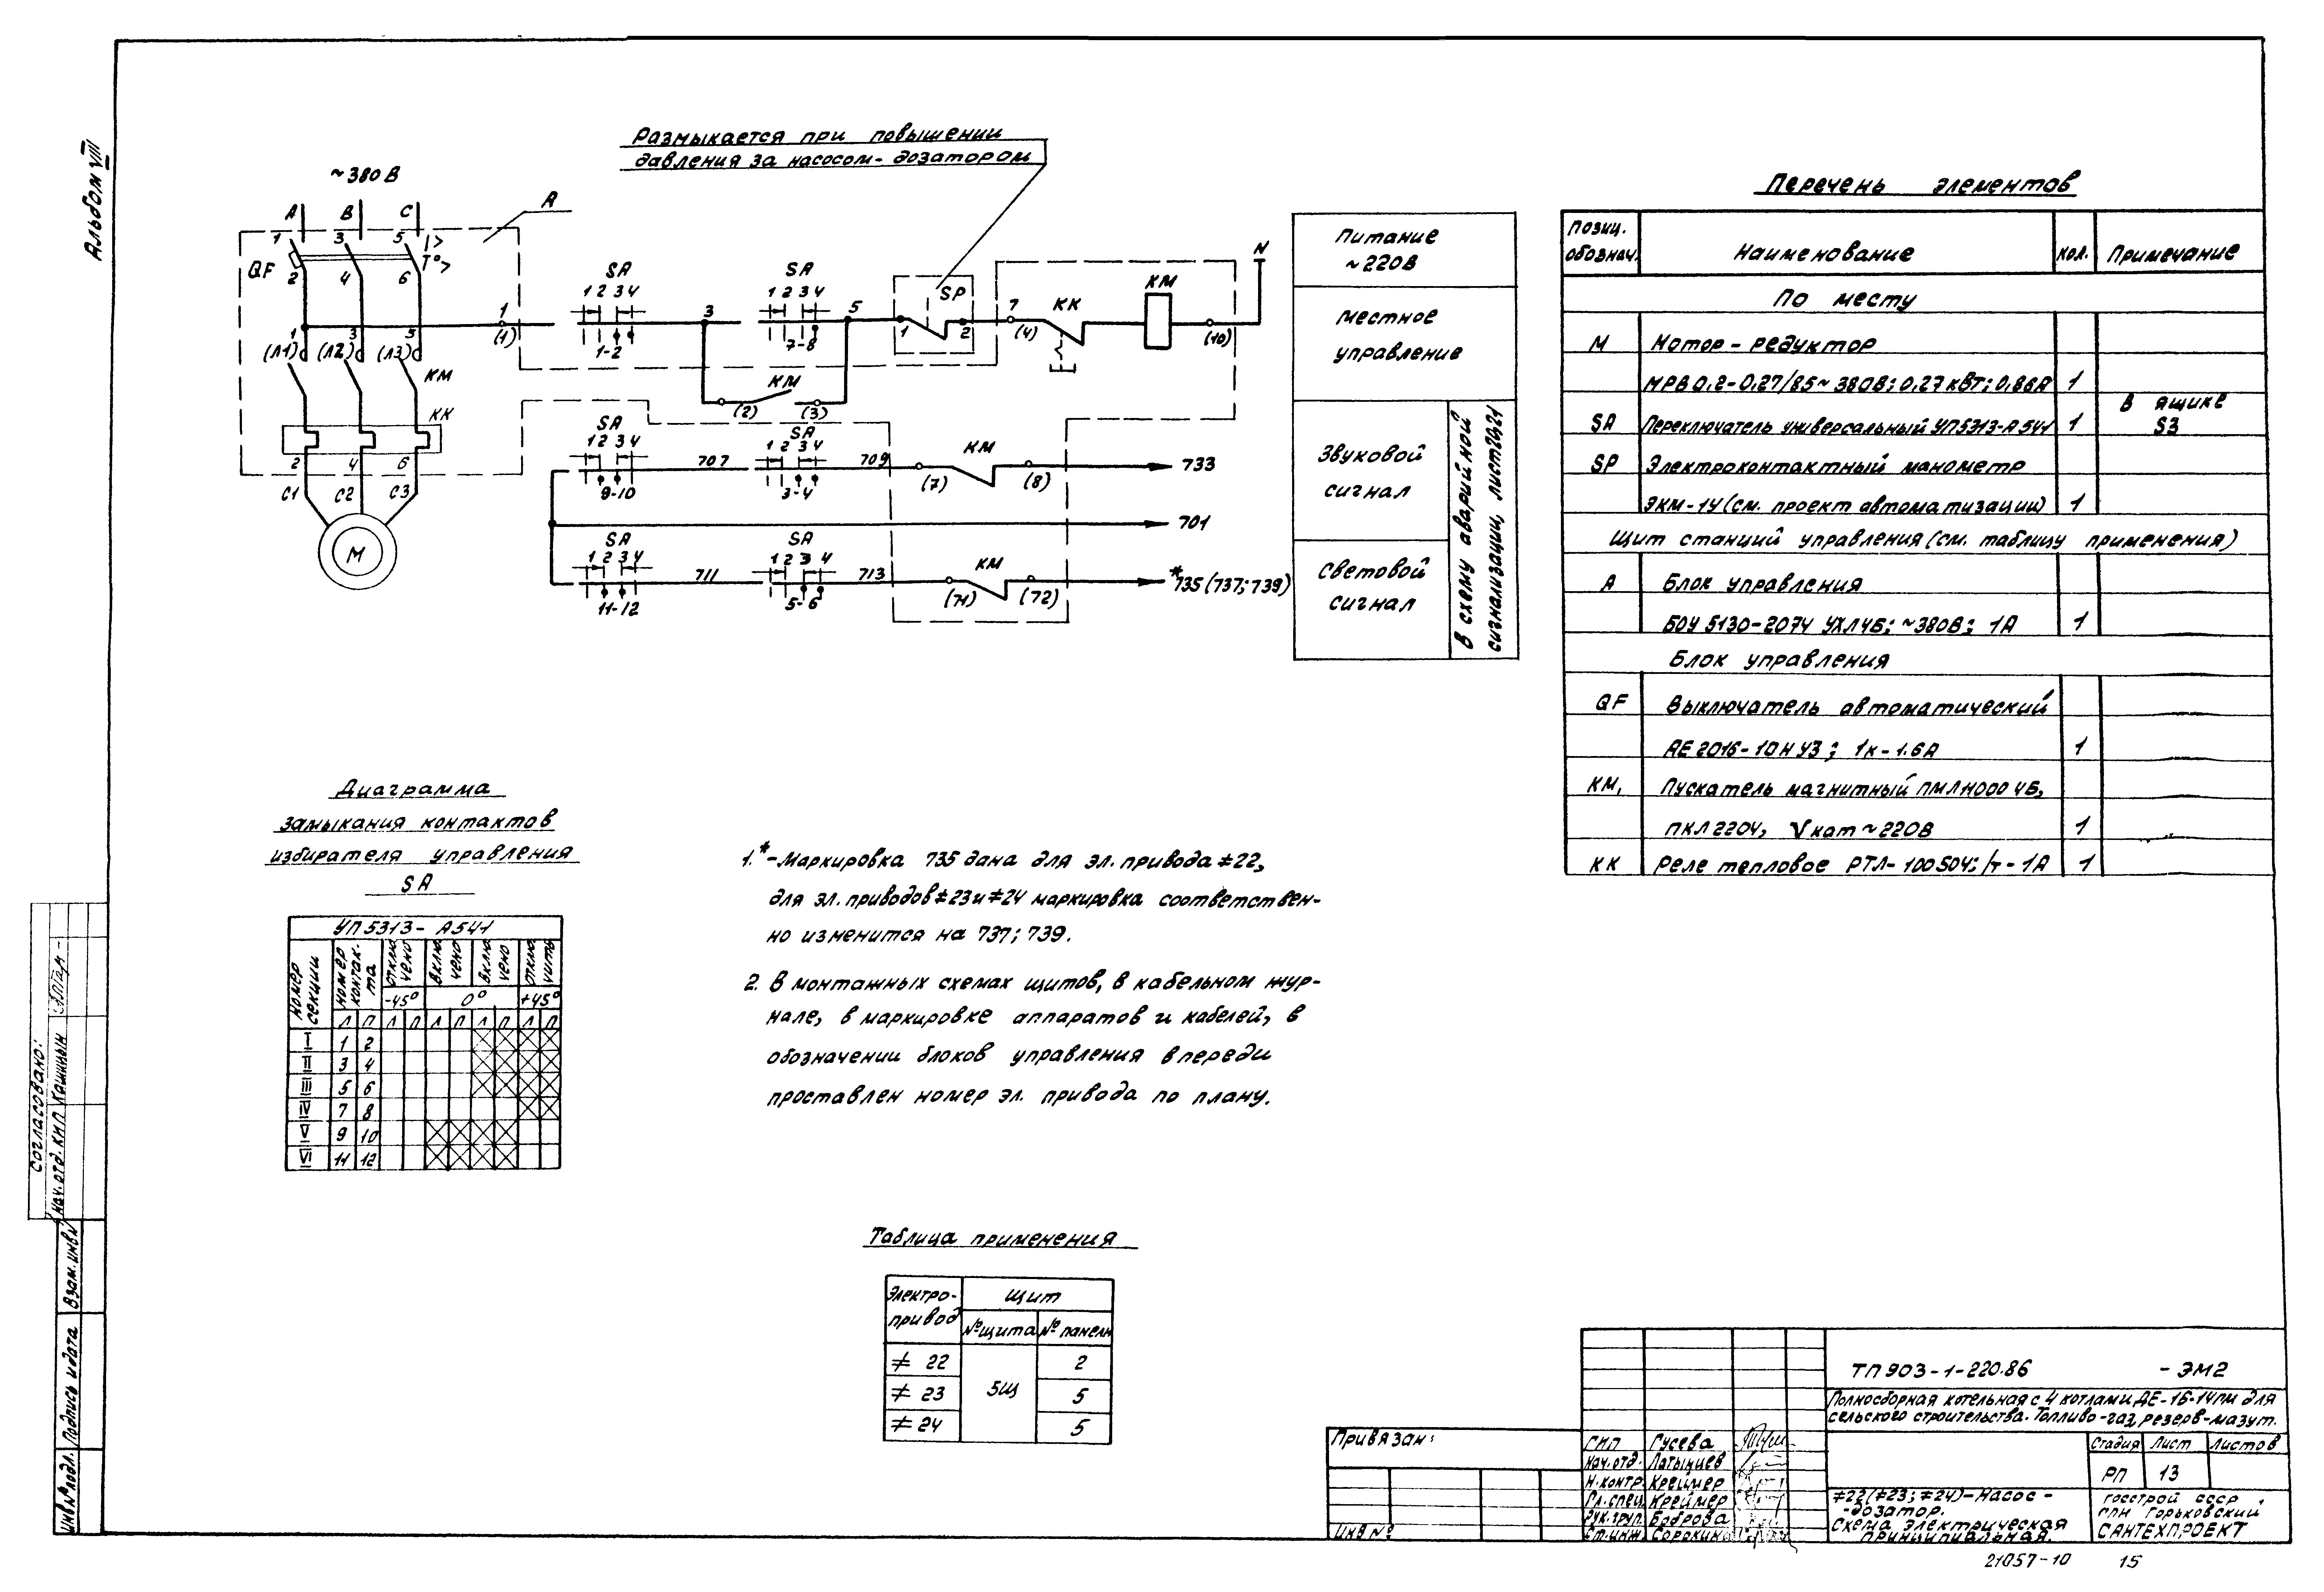 Альбом VIII
~380В
A B C
A
Размыкается при повышении
давления за насосом-дозатором
1 3 5 I>
T°>
QF
2 4 6
1 3 5
(Л1) (Л2) (Л3)
KM
KK
2 4 6
C1 C2 C3
M
1
(1)
SA
1 2 3 4
1-2
3
SA
1 2 3 4
7-8
5
SP
1 2
7
(4)
KK
KM
(10)
N
KM
(2) (3)
SA
1 2 3 4
9-10
707
SA
1 2 3 4
3-4
709
KM
(7) (8)
733
701
SA
1 2 3 4
11-12
711
SA
1 2 3 4
5-6
713
KM
(71) (72)
*735 (737; 739)
Питание
~220В
Местное
управление
Звуковой
сигнал
Световой
сигнал
В схему аварийной
сигнализации, лист 20,21
Перечень элементов
Позиц. обознач. Наименование Кол. Примечание
По месту
М Мотор-редуктор
МРВ 0,2-0,27/85 ~380В; 0,27 кВт; 0,86А 1
SA Переключатель универсальный УП5313-А541 1 В ящике S3
SP Электроконтактный манометр
ЭКМ-1У (см. проект автоматизации) 1
Щит станций управления (см. таблицу применения)
А Блок управления
БОУ 5130-2074 УХЛ4Б; ~380В; 1А 1
Блок управления
QF Выключатель автоматический
АЕ 2016-10Н У3; Iк-1.6А 1
KM, Пускатель магнитный ПМЛ 1100 04Б,
ПКЛ 2204, Vкат ~220В 1
KK Реле теплов​ое РТЛ-100504; Iт-1А 1
Диаграмма
замыкания контактов
избирателя управления
SA
УП5313-А541
Номер секции
Номер контакта
Отключено Включено Включено Отключить
-45° 0° +45°
Л П Л П Л П Л П Л П
I 1 2
II 3 4
III 5 6
IV 7 8
V 9 10
VI 11 12
1.*-Маркировка 735 дана для эл. привода ≠22,
для эл. приводов ≠23 и ≠24 маркировка соответствен-
но изменится на 737; 739.
2. В монтажных схемах щитов, в кабельном жур-
нале, в маркировке аппаратов и кабелей, в
обозначении блоков управления впереди
проставлен номер эл. привода по плану.
Таблица применения
Электро-
привод
Щит
№ щита № панели
≠ 22 5Щ 2
≠ 23 5
≠ 24 5
Согласовано:
Нач. отд. КИП Кашинын
Взам. инв. №
Подпись и дата
Инв. № подл.
Привязан:
Инв №
ГИП Гусева
Нач. отд. Латынцев
Н. контр. Креймер
Гл. спец. Креймер
Рук. груп. Боброва
Ст. инж. Сорокина
ТП 903-1-220.86 -ЭМ2
Полносборная котельная с 4 котлами ДЕ-16-14ГМ для
сельского строительства. Топливо-газ, резерв-мазут.
Стадия Лист Листов
РП 13
≠22 (≠23; ≠24)-Насос-
-дозатор.
Схема электрическая
принципиальная.
Госстрой СССР
ГПИ Горьковский
САНТЕХПРОЕКТ
21057-10 15